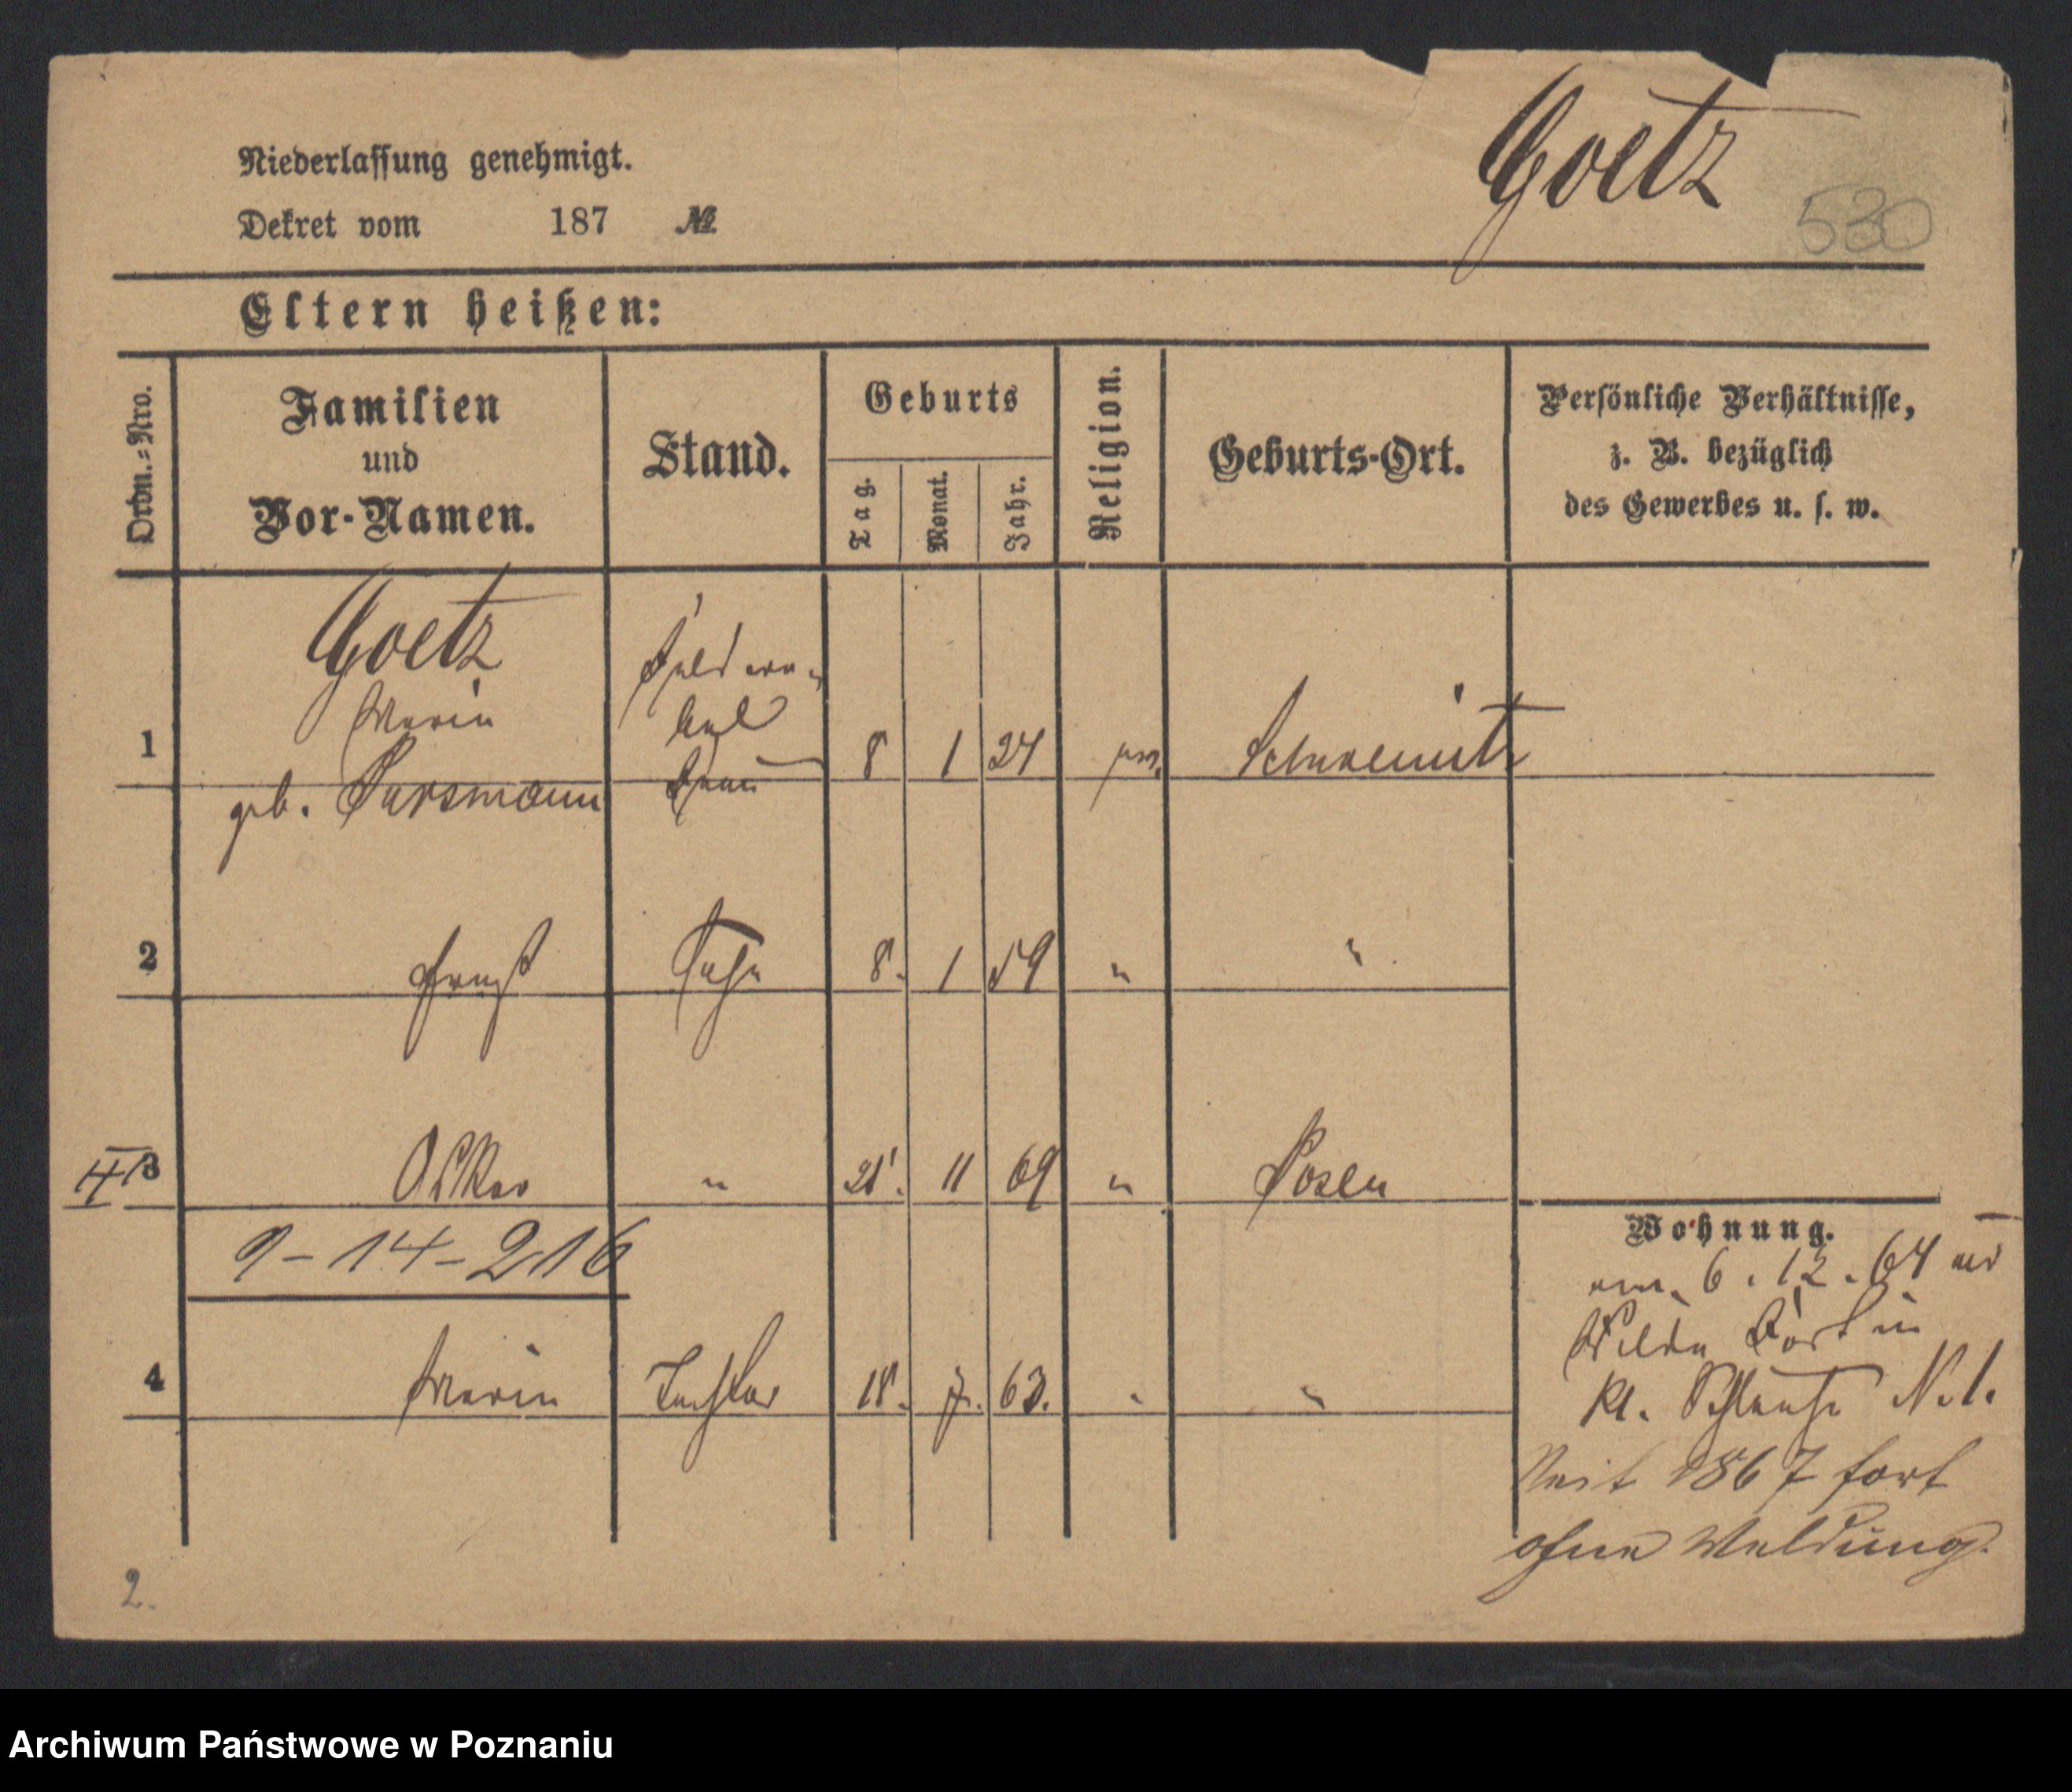 Goetz
530
Niederlassung genehmigt.
Dekret vom 187 №
Eltern heißen:
Ordn.=Nro.
Familien
und
Vor-Namen.
Stand.
Geburts
Tag.
Monat.
Jahr.
Religion.
Geburts-Ort.
Persönliche Verhältnisse,
z. B. bezüglich
des Gewerbes u. s. w.
Goetz
Marie
geb.
Frau
1 8 1 24
2 Ernst Sohn 8. 1 59 " "
3 Oskar " 11 69 " Posen
9-14-216
4 Marie Tochter 18. 7. 63. " "
Wohnung.
6. 12. 64
Wilda
Kl. N. 1.
Seit 1867 fort
ohne Meldung.
2.
Archiwum Państwowe w Poznaniu